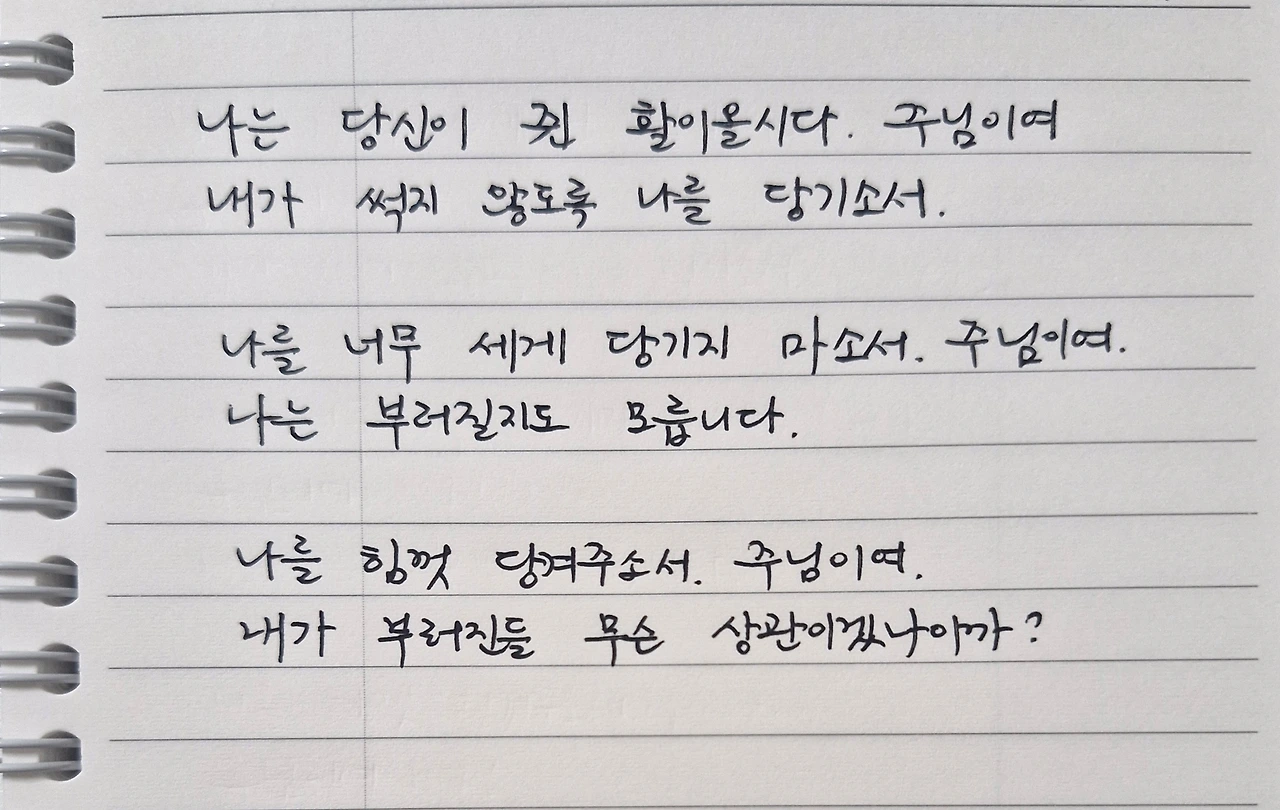 나는 당신이 쥔 활이올시다. 주님이여
내가 썩지 않도록 나를 당기소서.
나를 너무 세게 당기지 마소서. 주님이여.
나는 부러질지도 모릅니다.
나를 힘껏 당겨주소서. 주님이여.
내가 부러진들 무슨 상관이겠나이까?